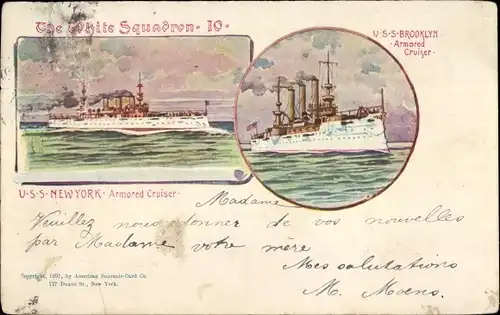 The White Squadron · 10 ·
U·S·S·BROOKLYN
· Armored
Cruiser ·
U·S·S· NEW YORK · Armored Cruiser ·
Madame
Veuillez nous donner de vos nouvelles
par Madame votre mère
Mes salutations
M. Moens.
Copyright, 1897, by American Souvenir-Card Co.
127 Duane St., New York.